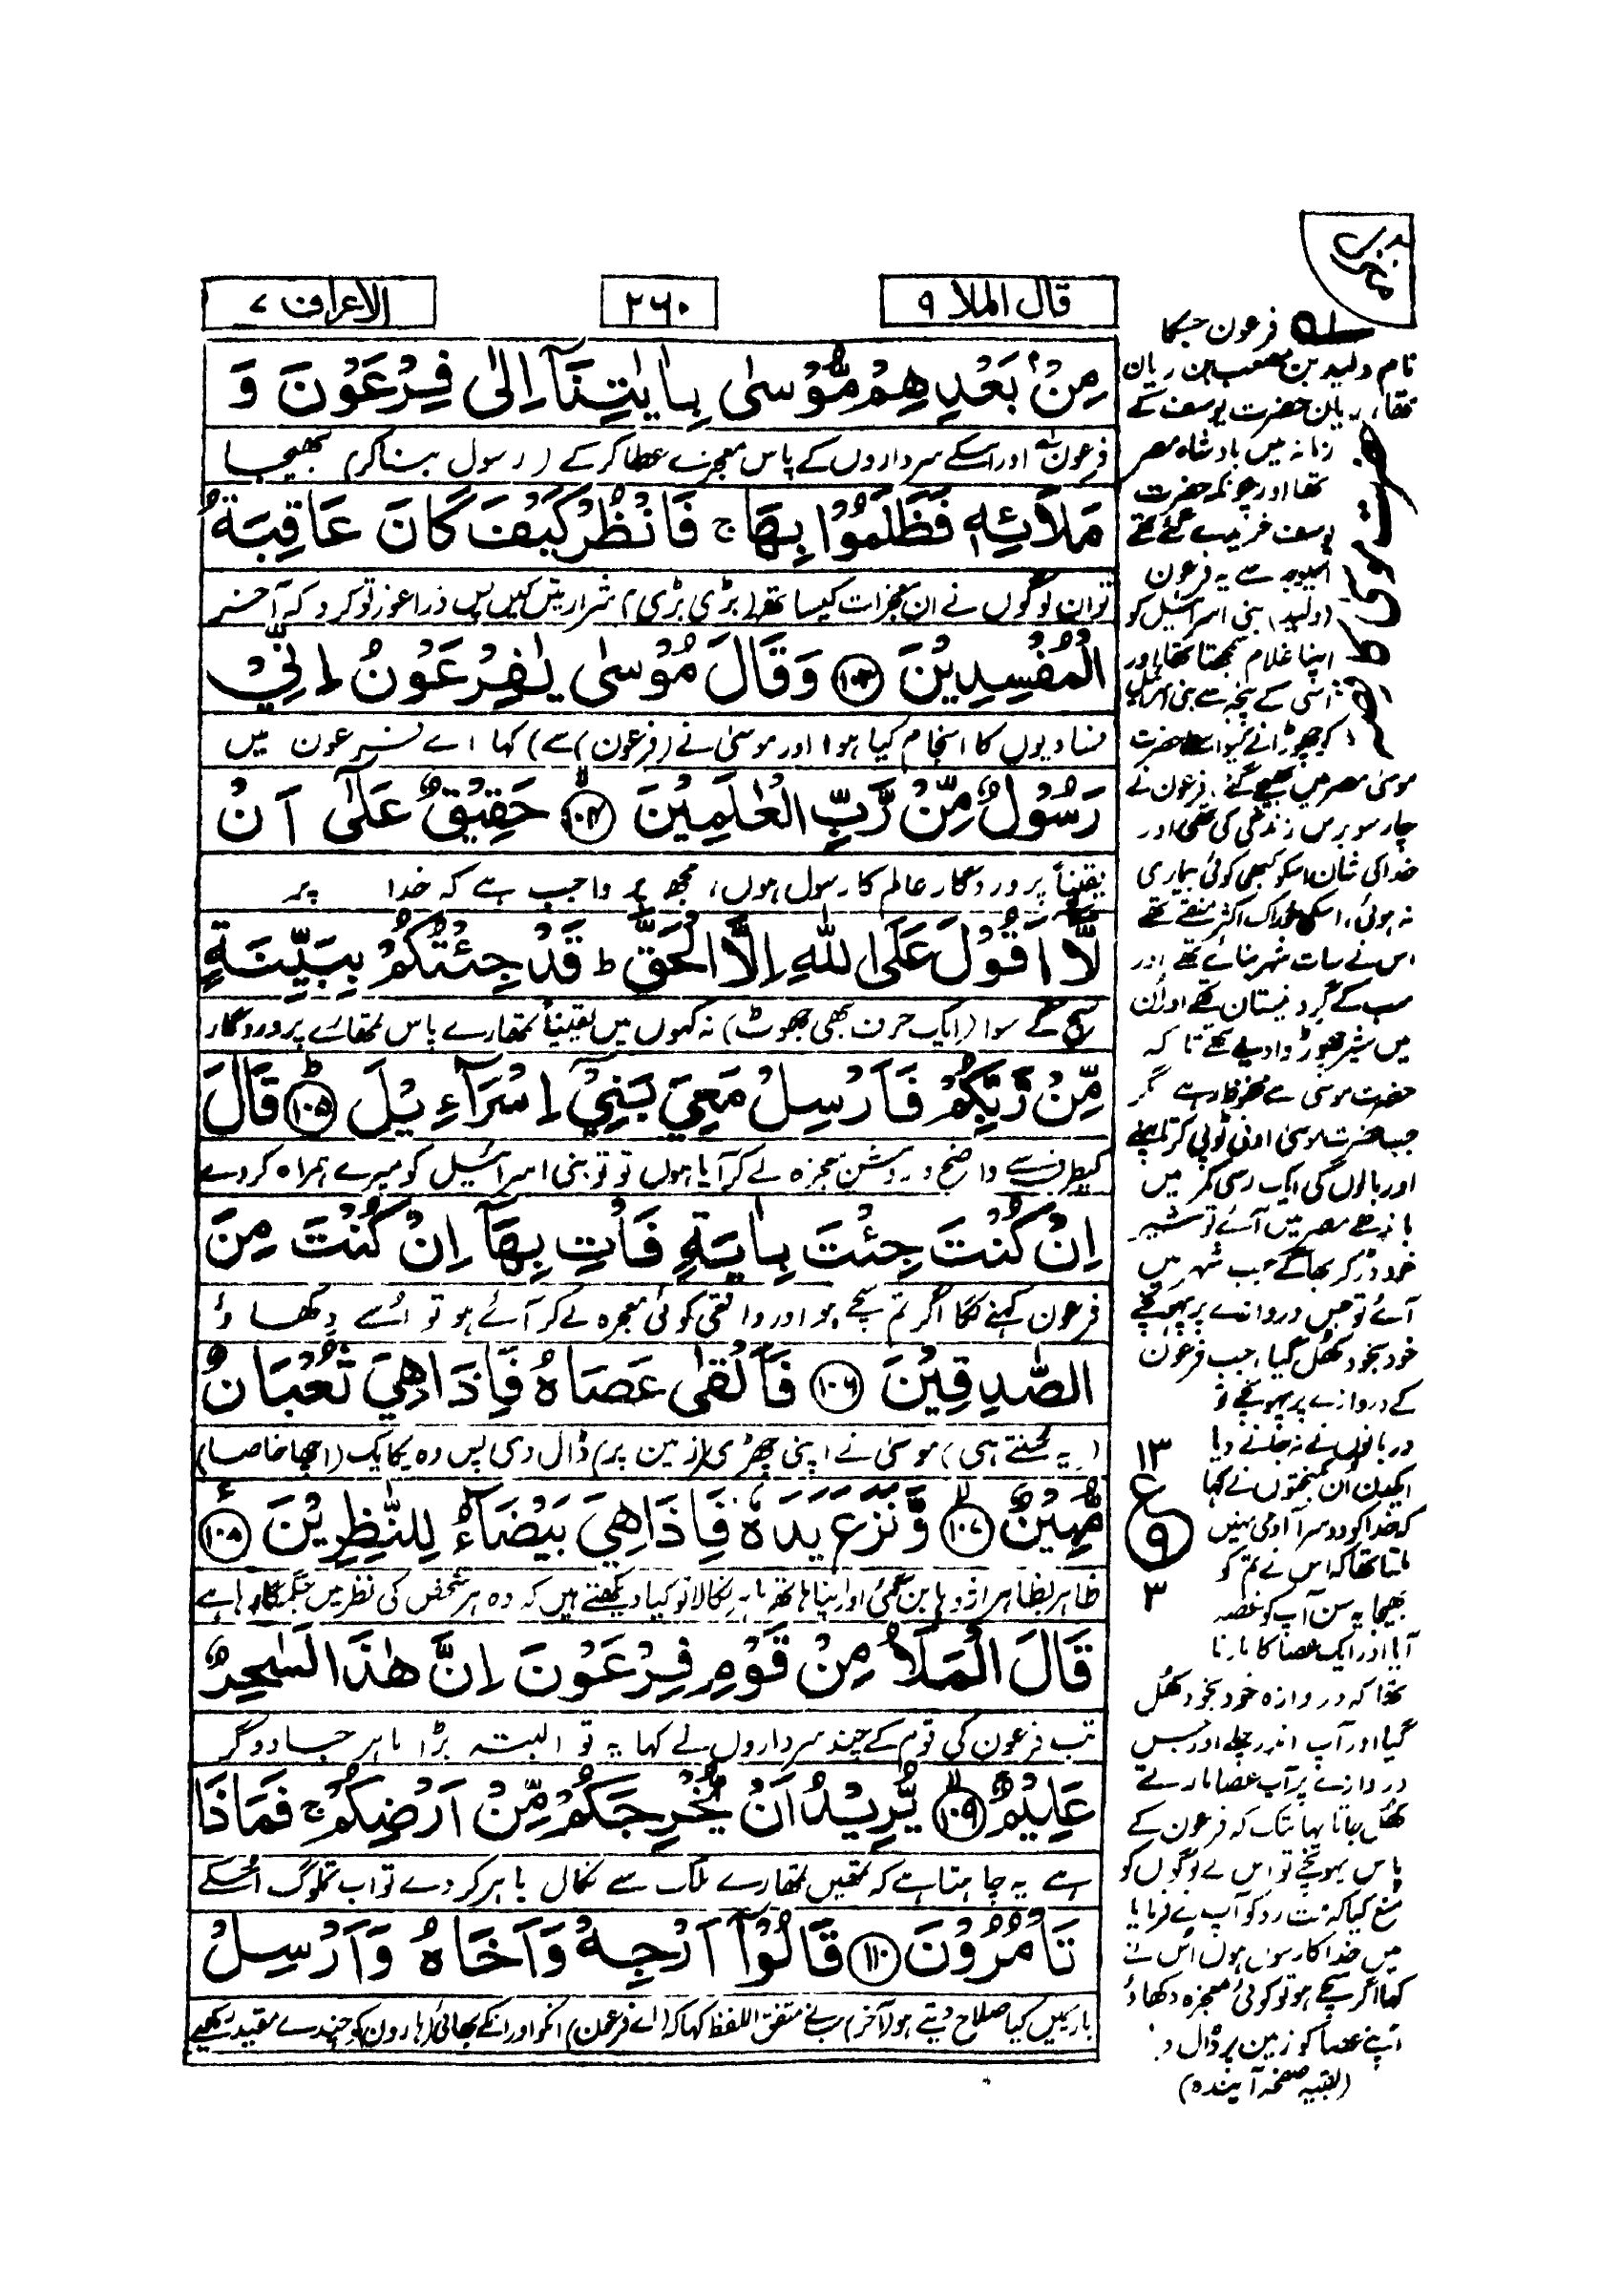 قال الملا ۹
۲۶۰
الاعراف ۷
مِنْۢ بَعْدِهِمْ مُّوْسٰى بِاٰيٰتِنَآ اِلٰى فِرْعَوْنَ وَ
فرعون اور اسکے سرداروں کے پاس معجزے عطا کر کے (رسول بنا کر) بھیجا
مَلَا۟ئِهٖ فَظَلَمُوْا بِهَا ۚ فَانْظُرْ كَيْفَ كَانَ عَاقِبَةُ
تو ان لوگوں نے ان معجزات کیساتھ (بڑی بڑی) شرارتیں کیں پس ذرا غور تو کرو کہ آخر
الْمُفْسِدِيْنَ ۱۰۳ وَقَالَ مُوْسٰى يٰفِرْعَوْنُ اِنِّيْ
فسادیوں کا انجام کیا ہوا اور موسیٰ نے (فرعون سے) کہا اے فرعون میں
رَسُوْلٌ مِّنْ رَّبِّ الْعٰلَمِيْنَ ۱۰۴ حَقِيْقٌ عَلٰٓى اَنْ
یقیناً پروردگار عالم کا رسول ہوں، مجھ پر واجب ہے کہ خدا پر
لَّا اَقُوْلَ عَلَى اللّٰهِ اِلَّا الْحَقَّ ط قَدْ جِئْتُكُمْ بِبَيِّنَةٍ
سچ کے سوا (ایک حرف بھی جھوٹ) نہ کہوں میں یقیناً تمھارے پاس تمھارے پروردگار
مِّنْ رَّبِّكُمْ فَاَرْسِلْ مَعِيَ بَنِيْٓ اِسْرَآءِيْلَ ۱۰۵ قَالَ
کیطرف سے واضح و روشن معجزہ لے کر آیا ہوں تو تو بنی اسرائیل کو میرے ہمراہ کر دے
اِنْ كُنْتَ جِئْتَ بِاٰيَةٍ فَاْتِ بِهَآ اِنْ كُنْتَ مِنَ
فرعون کہنے لگا اگر تم سچے ہو اور واقعی کوئی معجزہ لے کر آئے ہو تو اُسے دکھاؤ
الصّٰدِقِيْنَ ۱۰۶ فَاَلْقٰى عَصَاهُ فَاِذَا هِيَ ثُعْبَانٌ
(یہ سُنتے ہی) موسیٰ نے اپنی چھڑی (زمین پر) ڈال دی پس وہ یکایک (اچھا خاصا)
مُّبِيْنٌ ۱۰۷ وَّنَزَعَ يَدَهٗ فَاِذَا هِيَ بَيْضَآءُ لِلنّٰظِرِيْنَ ۱۰۸
ظاہر بظاہر اژدہا بن گئی اور اپنا ہاتھ باہر نکالا تو کیا دیکھتے ہیں کہ وہ ہر شخص کی نظر میں جگمگا رہا ہے
قَالَ الْمَلَاُ مِنْ قَوْمِ فِرْعَوْنَ اِنَّ هٰذَا لَسٰحِرٌ
تب فرعون کی قوم کے چند سرداروں نے کہا یہ تو البتہ بڑا ماہر جادوگر
عَلِيْمٌ ۱۰۹ يُّرِيْدُ اَنْ يُّخْرِجَكُمْ مِّنْ اَرْضِكُمْ ۚ فَمَاذَا
ہے یہ چاہتا ہے کہ تمھیں تمھارے ملک سے نکال باہر کر دے تو اب تم لوگ اسکے
تَاْمُرُوْنَ ۱۱۰ قَالُوْٓا اَرْجِهْ وَاَخَاهُ وَاَرْسِلْ
بارے میں کیا صلاح دیتے ہو (آخر) سب نے متفق اللفظ کہا کہ (اے فرعون) انکو اور انکے بھائی (ہارون) کو چندے مقید رکھیے
فرعون جسکا
نام ولید بن مصعب بن ریان
تھا، ریان حضرت یوسف کے
زمانہ میں بادشاہ مصر
تھا اور چونکہ حضرت
یوسف خریدے گئے تھے
اسیوجہ سے یہ فرعون
(ولید) بنی اسرائیل کو
اپنا غلام سمجھتا تھا اور
اسی کے پنجہ سے بنی اسرائیل
کو چھوڑانے کیواسطے حضرت
موسیٰ مصر میں بھیجے گئے، فرعون نے
چار سو برس زندگی کی تھی اور
خدا کی شان اسکو کبھی کوئی بیماری
نہ ہوئی، اسکی خوراک اکثر
اس نے سات شہر بنائے تھے اور
سب کے گرد نیستان تھے اور اُن
میں شیر چھوڑوا دیے تھے تا کہ
حضرت موسیٰ سے محفوظ رہے مگر
جب حضرت موسیٰ اونی ٹوپی کرتا پہنے
اور بالوں کی ایک رسی کمر میں
باندھے مصر میں آئے تو شیر
خود ڈر کر بھاگے جب شہر میں
آئے تو جس دروازے پر پہونچے
خود بخود کھُل گیا، جب فرعون
کے دروازے پر پہونچے تو
دربانوں نے نہ جانے دیا
۱۳
ع
۹
۳
کہ خدا کو دوسرا آدمی نہیں
ملتا تھا کہ اس نے تم کو
بھیجا یہ سن آپ کو غصہ
آیا اور ایک عصا کا مارنا
تھا کہ دروازہ خود بخود کھُل
گیا اور آپ اندر چلے اور جس
دروازے پر آپ عصا مارتے
کھُل جاتا یہانتک کہ فرعون کے
پاس پہونچے تو اس نے لوگوں کو
منع کیا کہ مت روکو آپ نے فرمایا
میں خدا کا رسول ہوں اس نے
کہا اگر سچے ہو تو کوئی معجزہ دکھاؤ
اپنے عصا کو زمین پر ڈال د
(بقیہ صفحہ آیندہ)